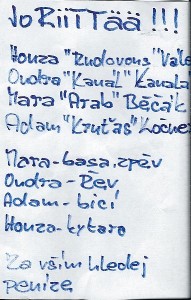 JoRiiTTÄÄ !!!
Honza "Rudovous" Vale
Ondra "Kanal" Kanala
Mara "Arab" Běčák
Adam "Kruťas" Ločner
Mara-basa,zpěv
Ondra-Řev
Adam-bicí
Honza-kytara
Za vším hledej
peníze